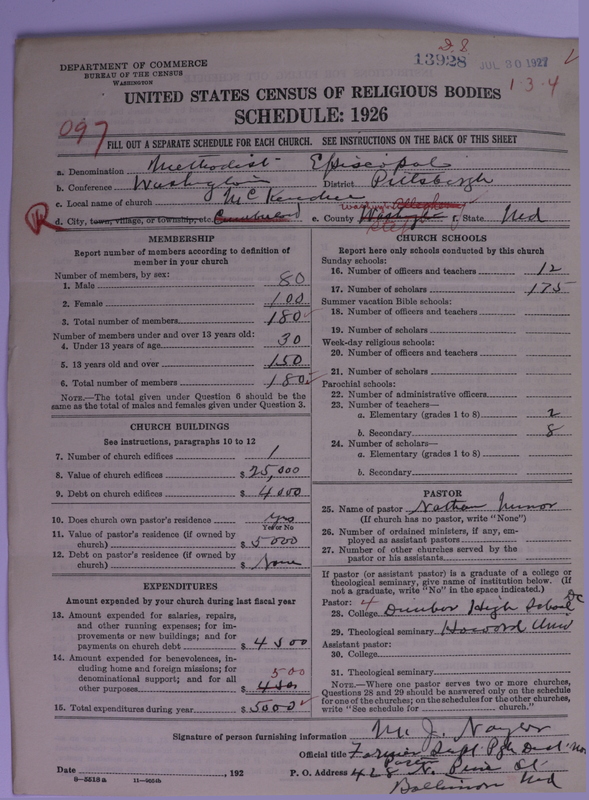 D.S
13928 JUL 30 1927
1-3-4
DEPARTMENT OF COMMERCE
BUREAU OF THE CENSUS
WASHINGTON
UNITED STATES CENSUS OF RELIGIOUS BODIES
SCHEDULE: 1926
097
FILL OUT A SEPARATE SCHEDULE FOR EACH CHURCH. SEE INSTRUCTIONS ON THE BACK OF THIS SHEET
a. Denomination Methodist Episcopal
b. Conference Washington District Pittsburgh
c. Local name of church McKendree
R d. City, town, village, or township, etc. Cumberland e. County Washington Allegheny f. State Md
MEMBERSHIP
Report number of members according to definition of member in your church
Number of members, by sex:
1. Male 80
2. Female 100
3. Total number of members 180
Number of members under and over 13 years old:
4. Under 13 years of age 30
5. 13 years old and over 150
6. Total number of members 180
NOTE.—The total given under Question 6 should be the same as the total of males and females given under Question 3.
CHURCH BUILDINGS
See instructions, paragraphs 10 to 12
7. Number of church edifices 1
8. Value of church edifices $ 25,000
9. Debt on church edifices $ 4000
10. Does church own pastor's residence yes
Yes or No
11. Value of pastor's residence (if owned by church) $ 5000
12. Debt on pastor's residence (if owned by church) $ None
EXPENDITURES
Amount expended by your church during last fiscal year
13. Amount expended for salaries, repairs, and other running expenses; for improvements or new buildings; and for payments on church debt $ 4500
14. Amount expended for benevolences, including home and foreign missions; for denominational support; and for all other purposes $ 450 500
15. Total expenditures during year $ 5000
CHURCH SCHOOLS
Report here only schools conducted by this church
Sunday schools:
16. Number of officers and teachers 12
17. Number of scholars 175
Summer vacation Bible schools:
18. Number of officers and teachers
19. Number of scholars
Week-day religious schools:
20. Number of officers and teachers
21. Number of scholars
Parochial schools:
22. Number of administrative officers
23. Number of teachers—
a. Elementary (grades 1 to 8) 2
b. Secondary 8
24. Number of scholars—
a. Elementary (grades 1 to 8)
b. Secondary
PASTOR
25. Name of pastor Nathan
(If church has no pastor, write "None")
26. Number of ordained ministers, if any, employed as assistant pastors
27. Number of other churches served by the pastor or his assistants
If pastor (or assistant pastor) is a graduate of a college or theological seminary, give name of institution below. (If not a graduate, write "No" in the space indicated.)
Pastor: 4
28. College Dunbar High School DC
29. Theological seminary Howard Univ
Assistant pastor:
30. College
31. Theological seminary
NOTE.—Where one pastor serves two or more churches, Questions 28 and 29 should be answered only on the schedule for one of the churches; on the schedules for the other churches, write "See schedule for church."
Signature of person furnishing information M. J. Naylor
Official title Former Supt. Pgh Dist. now
Pastor
Date , 192 P. O. Address 428 N. Pine St
Baltimore Md
9-5518a 11-9054b